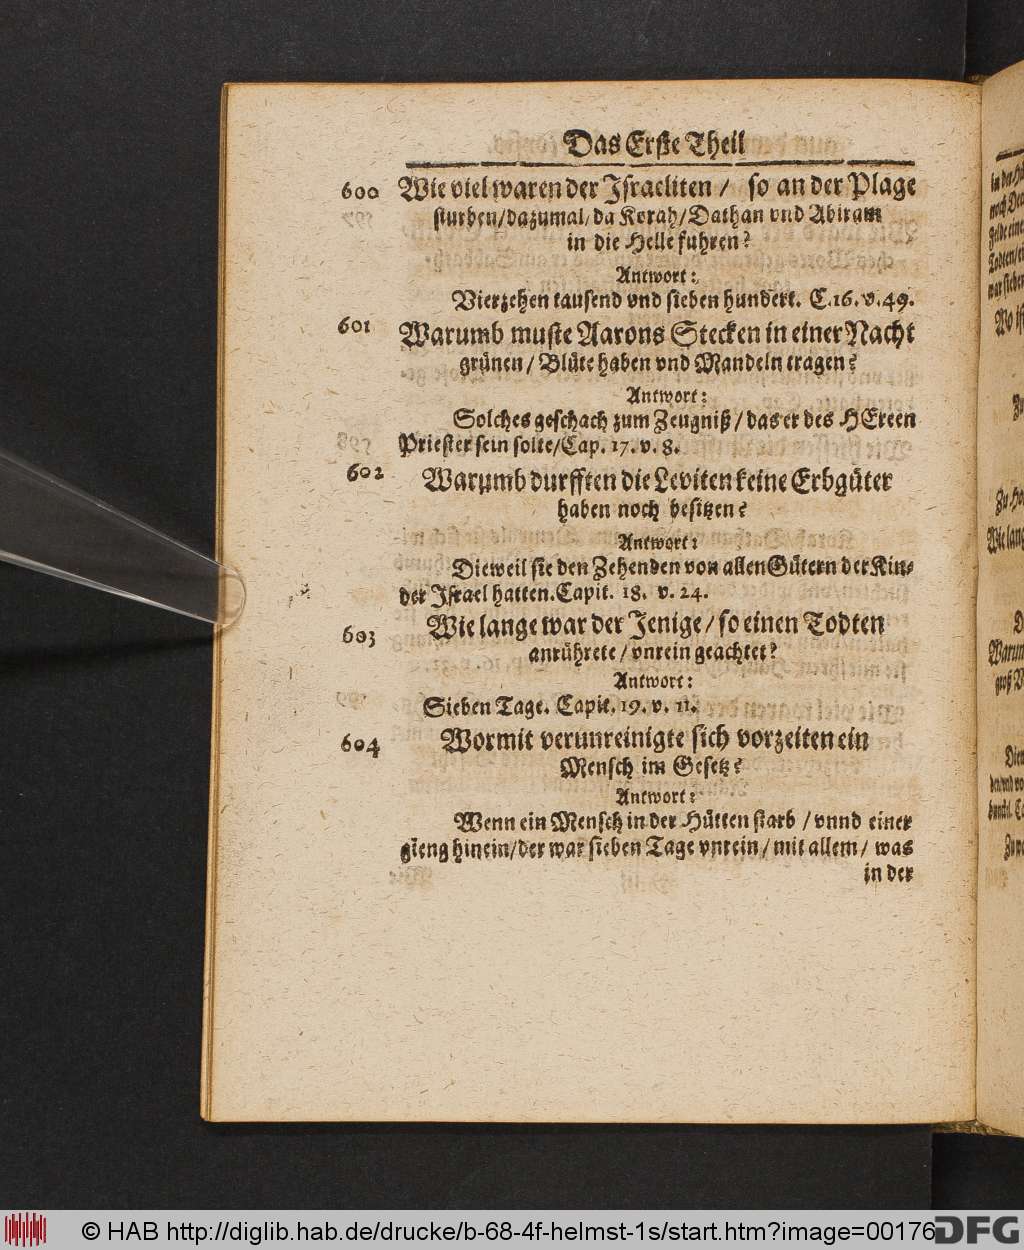 Das Erste Theil
600 Wie viel waren der Israeliten / so an der Plage
sturben/dazumal/da Korah/Dathan vnd Abiram
in die Helle fuhren?
Antwort:
Vierzehen tausend vnd sieben hundert. C.16. v.49.
601 Warumb muste Aarons Stecken in einer Nacht
grünen / Blüte haben vnd Mandeln tragen?
Antwort:
Solches geschach zum Zeugniß / das er des HEreen
Priester sein solte/Cap. 17. v. 8.
602 Warumb durfften die Leviten keine Erbgüter
haben noch besitzen?
Antwort:
Dieweil sie den Zehenden von allen Gütern der Kin-
der Israel hatten. Capit. 18. v. 24.
603 Wie lange war der Jenige / so einen Todten
anrührete / vnrein geachtet?
Antwort:
Sieben Tage. Capit. 19. v. 11.
604 Wormit verunreinigte sich vorzeiten ein
Mensch im Gesetz?
Antwort:
Wenn ein Mensch in der Hütten starb / vnnd einer
gieng hinein/der war sieben Tage vnrein / mit allem / was
in der
© HAB http://diglib.hab.de/drucke/b-68-4f-helmst-1s/start.htm?image=00176
DFG